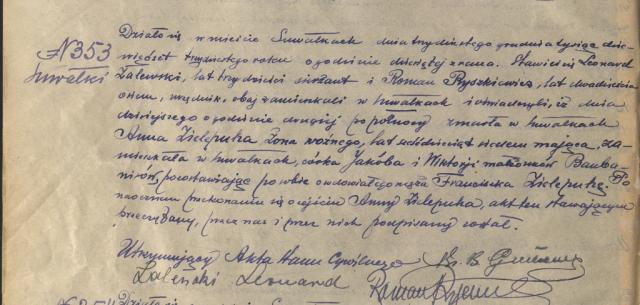 N 353
Suwałki
Działo się w mieście Suwałkach dnia trzydziestego grudnia tysiąc dzie-
więćset trzydziestego roku o godzinie dziesiątej z rana. Stawili się Leonard
Zalewski, lat trzydzieści sierżant i Roman Ryszkiewicz, lat dwadzieścia
osiem, urzędnik, obaj zamieszkali w Suwałkach i oświadczyli, iż dnia
dzisiejszego o godzinie drugiej po północy zmarła w Suwałkach
Anna Zielepucha żona woźnego, lat siedem mająca, za-
mieszkała w Suwałkach, córka Jakóba i Wiktorji małżonków
pozostawiając po sobie owdowiałego męża Franciszka Zielepuchę. Po
naocznem przekonaniu się o zejściu Anny Zielepucha, akt ten stawającym
przeczytany, przez nas i przez nich podpisany został.
Utrzymujący Akta Stanu Cywilnego Ks. B.
Zaleński Leonard Roman
Działo się